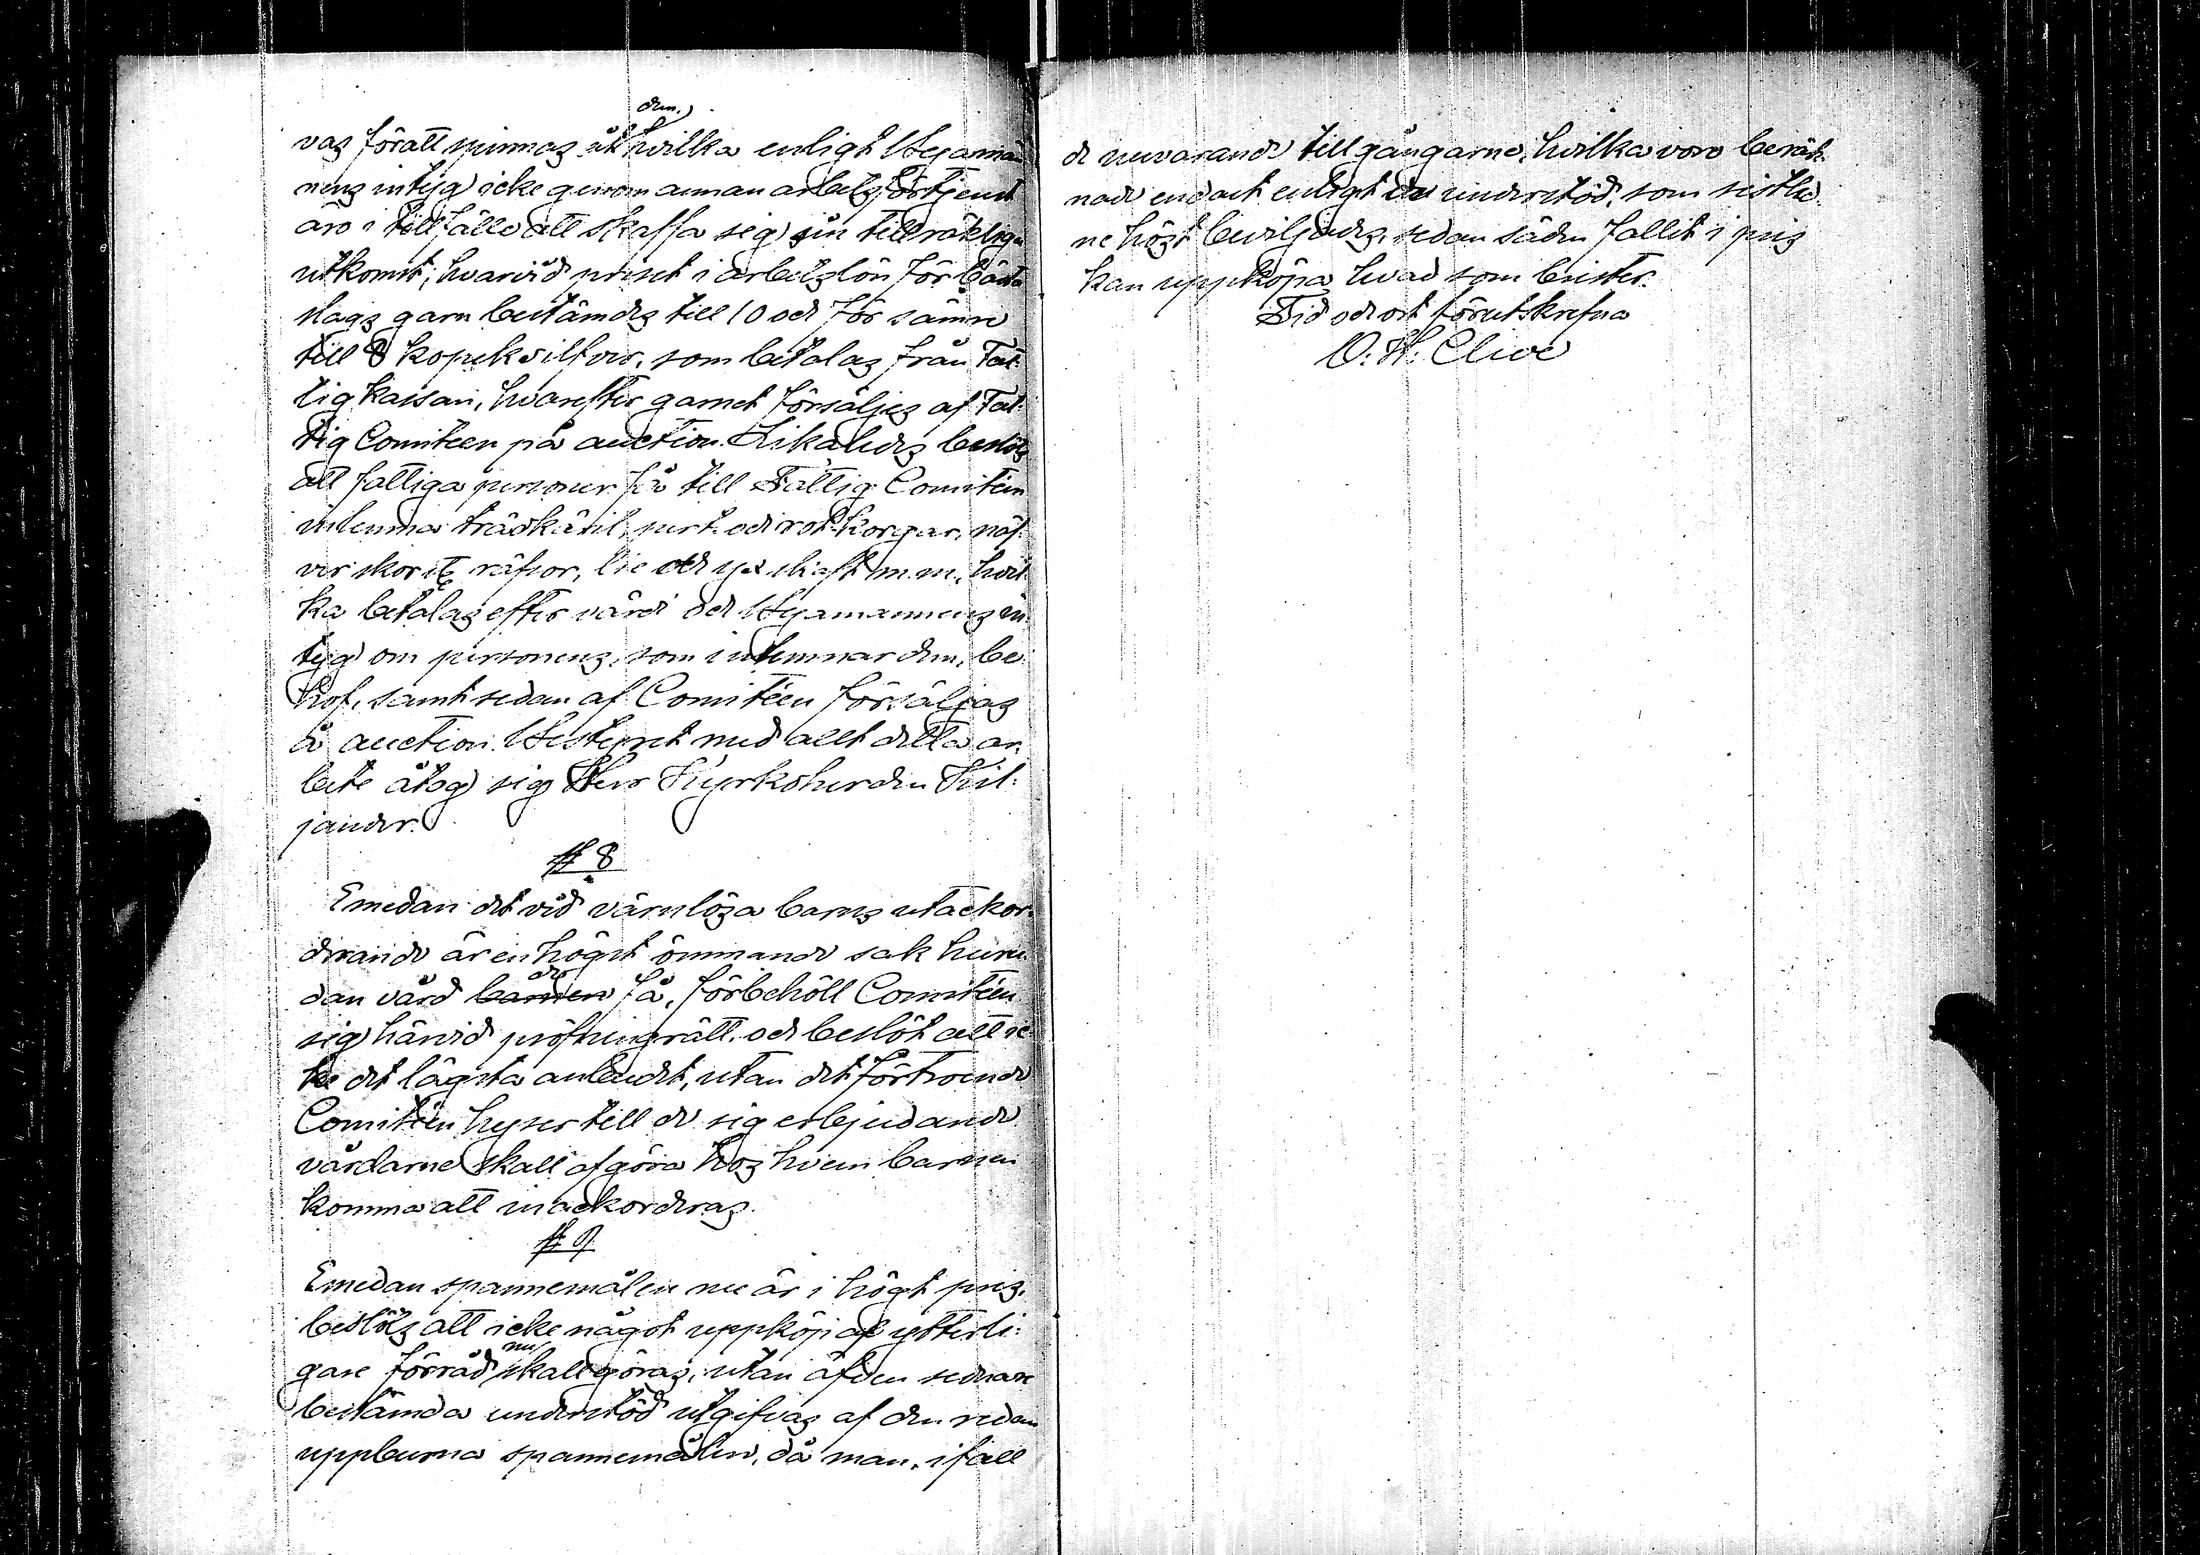 dem,
vas föratt spinnas åt hvilka enligt Byamän
nens intyg icke genom annan arbetsförtjenst
äro i tillfälle att skaffa sig sin tillräkliga
utkomst, hvarvid priset i arbetslön för bästa
slags garn bestämdes till 10 och för sämre
till 8 kopek silfver, som betalas från Fat-
tigkassan, hvarefter garnet försäljes af Fat-
tig Comitéen på auction. Likaledes beslöts
att fattiga personer få till Fattig Comitéen
inlemna trädkäril, pert- och rot-korgar, näf-
verskor, räfsor, lie och yx skaft m. m., hvil-
ka betalas efter värde och Byamannens in-
tyg om personens, som inlemnar dem, be-
hof, samt sedan af Comitéen försäljas
å auction. Bestyret med allt detta ar-
bete åtog sig Herr Kyrkoherden Kil-
jander.
§ 8
Emedan det vid värnlösa barns utackor-
derande är en högst ömmande sak huru-
de
dan vård barnen få, förbehöll Comitéen
sig härvid pröfningsrätt, och beslöt att ic-
ke det lägsta anbudet, utan det förtroende
Comitéen hyser till de sig erbjudande
vårdarne skall afgöra hos hvem barnen
komma att inackorderas.
§ 9
Emedan spannemålen nu är i högt pris,
beslöts att icke något uppköp af ytterli-
nu
gare förråd skall göras, utan äfven sednare
bestämda understöd utgifvas af den redan
uppburna spannemålen, då man, ifall
de nuvarande tillgångarne, hvilka voro beräk-
nade endast enligt de understöd, som sistlid-
ne höst beviljades, sedan säden fallit i pris
kan uppköpa hvad som brister.
Tid och ort förutskrefna
O. H. Clive